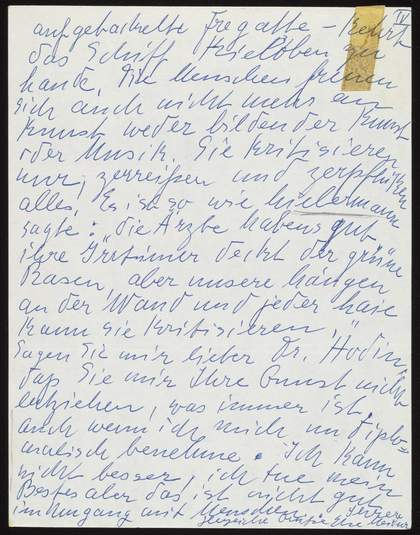 IV
aufgetackelte Fregatte – kehrt
das Schiff Kieloben zu
hande. Die Menschen freuen
sich auch nicht mehr an
Kunst weder bildender Kunst
oder Musik. Sie kritisieren
nur, zerreißen und zerpflücken
alles. Es ist so wie Liebermann
sagte: "die Ärzte habens gut
ihre Irrtümer deckt der grüne
Rasen, aber unsere hängen
an der Wand und jeder
kann sie kritisieren."
Sagen Sie mir lieber Dr. Hodin,
daß Sie mir Ihre Gunst nicht
entziehen, was immer ist,
auch wenn ich mich undiplo=
matisch benehme. Ich kann
nicht besser, ich tue mein
Bestes aber das ist nicht gut
im Umgang mit Menschen.
Else Meidner